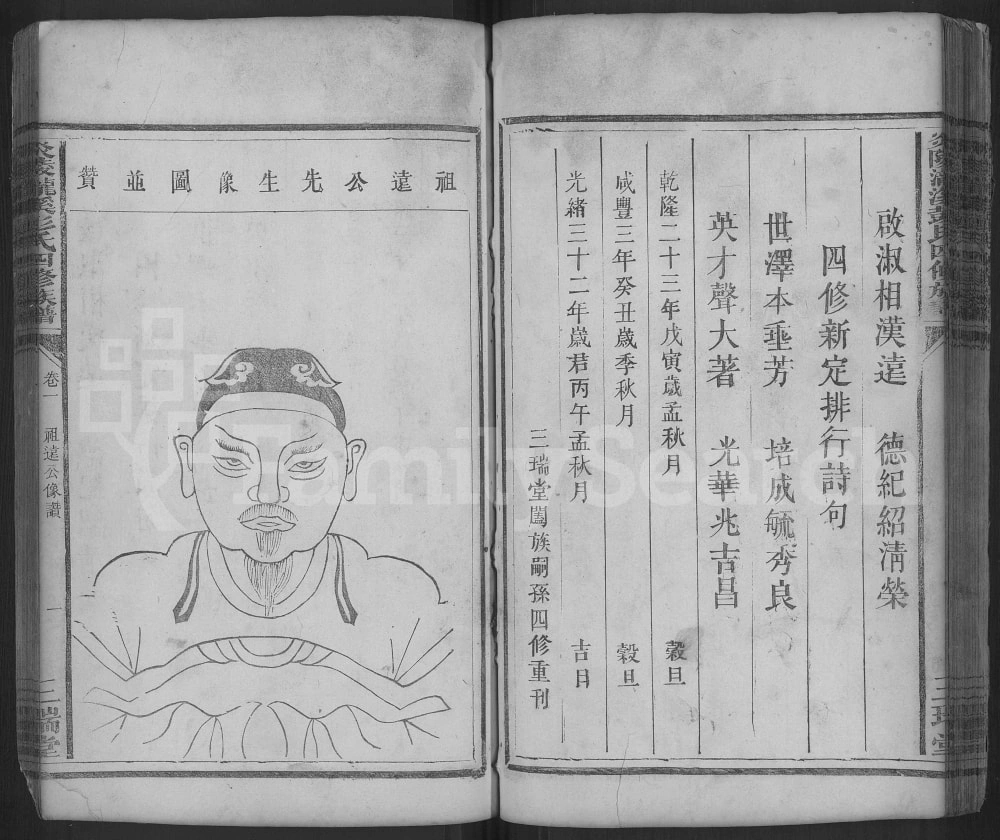 啟淑相漢遠 德紀紹淸榮
四修新定排行詩句
世澤本垂芳 培成毓秀良
英才聲大著 光華兆吉昌
乾隆二十三年戊寅歲孟秋月 穀旦
咸豐三年癸丑歲季秋月 穀旦
光緒三十二年歲君丙午孟秋月 吉日
三瑞堂闔族嗣孫四修重刊
三瑞堂
祖遠公先生像圖並贊
氏四修族譜
卷一
祖遠公像讚
一
三瑞堂